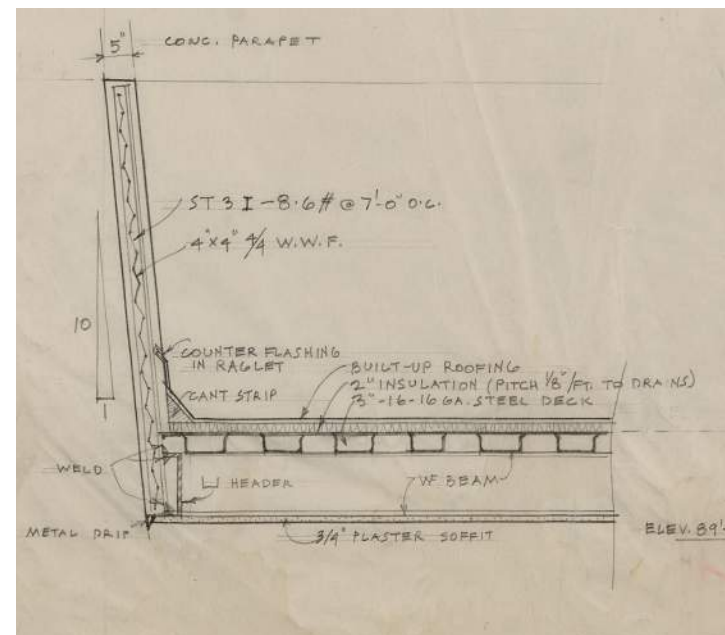 5"
CONC. PARAPET
ST 3 I - 8.6# @ 7'-0" O.C.
4"x4" 4/4 W.W.F.
10
1
COUNTER FLASHING
IN RAGLET
CANT STRIP
BUILT-UP ROOFING
2" INSULATION (PITCH 1/8"/FT. TO DRAINS)
3"-16-16 GA. STEEL DECK
WELD
HEADER
WF BEAM
METAL DRIP
3/4" PLASTER SOFFIT
ELEV. 89'-